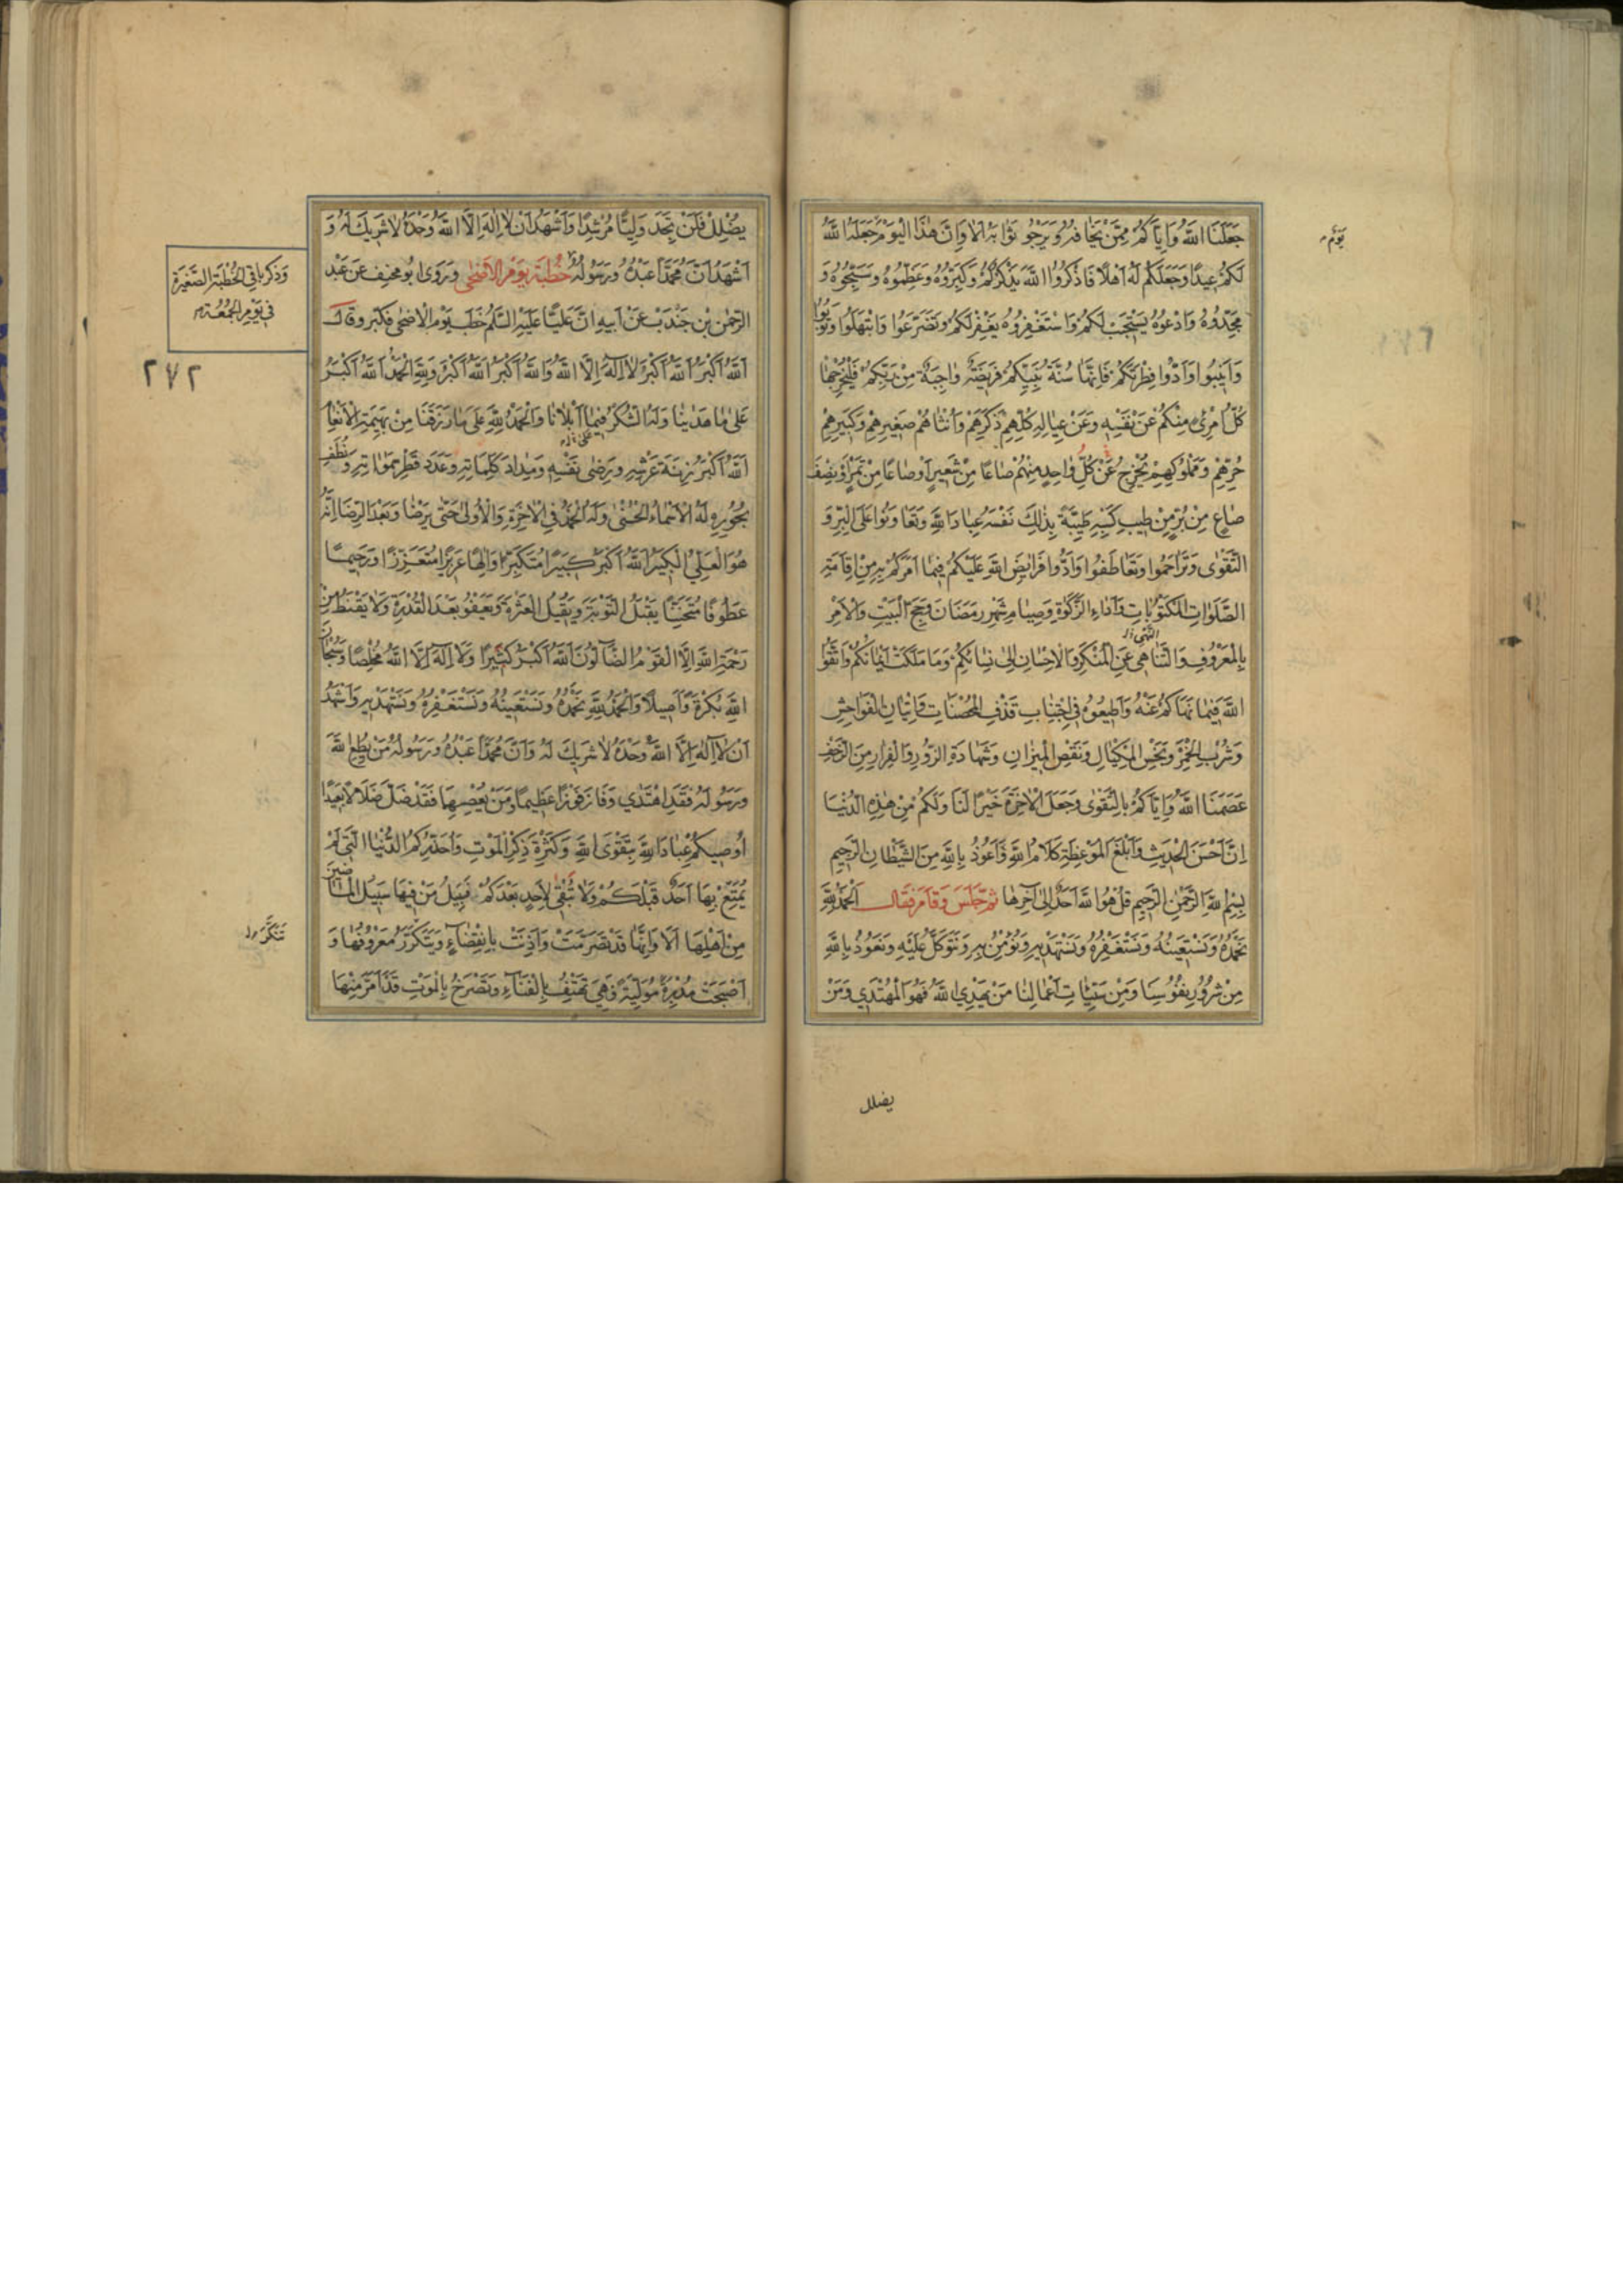 جَعَلَنَا اللّٰهُ وَاِيَّاكُمْ مِمَّنْ يَخَافُهُ وَيَرْجُو ثَوَابَهُ اَلَا وَاِنَّ هٰذَا الْيَوْمَ جَعَلَهُ اللّٰهُ
يَوْمٌ
لَكُمْ عِيدًا وَجَعَلَكُمْ لَهُ اَهْلًا فَاذْكُرُوا اللّٰهَ يَذْكُرْكُمْ وَكَبِّرُوهُ وَعَظِّمُوهُ وَسَبِّحُوهُ وَ
مَجِّدُوهُ وَادْعُوهُ يَسْتَجِبْ لَكُمْ وَاسْتَغْفِرُوهُ يَغْفِرْ لَكُمْ وَتَضَرَّعُوا وَابْتَهِلُوا وَتُوبُوا
وَاَنِيبُوا وَاَدُّوا فِطْرَتَكُمْ فَاِنَّهَا سُنَّةُ نَبِيِّكُمْ فَرِيضَةٌ وَاجِبَةٌ مِنْ رَبِّكُمْ فَلْيُخْرِجْهَا
كُلُّ امْرِئٍ مِنْكُمْ عَنْ نَفْسِهِ وَعَنْ عِيَالِهِ كُلِّهِمْ ذَكَرِهِمْ وَاُنْثَاهُمْ صَغِيرِهِمْ وَكَبِيرِهِمْ
حُرِّهِمْ وَمَمْلُوكِهِمْ يُخْرِجُ عَنْ كُلِّ وَاحِدٍ مِنْهُمْ صَاعًا مِنْ شَعِيرٍ اَوْ صَاعًا مِنْ تَمْرٍ اَوْ نِصْفَ
صَاعٍ مِنْ بُرٍّ مِنْ طِيبِ كَسْبِهِ طَيِّبَةً بِذٰلِكَ نَفْسُهُ عِبَادَ اللّٰهِ وَتَعَاوَنُوا عَلَى الْبِرِّ وَ
التَّقْوٰى وَتَرَاحَمُوا وَتَعَاطَفُوا وَاَدُّوا فَرَايِضَ اللّٰهِ عَلَيْكُمْ فِيمَا اَمَرَكُمْ بِهِ مِنْ اِقَامَةِ
الصَّلَوَاتِ الْمَكْتُوبَاتِ وَاَدَاءِ الزَّكٰوةِ وَصِيَامِ شَهْرِ رَمَضَانَ وَحَجِّ الْبَيْتِ وَالْاَمْرِ
بِالْمَعْرُوفِ وَالتَّنَاهِي عَنِ الْمُنْكَرِ وَالْاِحْسَانِ اِلٰى نِسَائِكُمْ وَمَا مَلَكَتْ اَيْمَانُكُمْ وَاتَّقُوا
اللّٰهَ فِيمَا نَهَاكُمْ عَنْهُ وَاَطِيعُوهُ فِي اجْتِنَابِ قَذْفِ الْمُحْصَنَاتِ وَاِتْيَانِ الْفَوَاحِشِ
وَشُرْبِ الْخَمْرِ وَبَخْسِ الْمِكْيَالِ وَنَقْصِ الْمِيزَانِ وَشَهَادَةِ الزُّورِ وَالْفِرَارِ مِنَ الزَّحْفِ
عَصَمَنَا اللّٰهُ وَاِيَّاكُمْ بِالتَّقْوٰى وَجَعَلَ الْاٰخِرَةَ خَيْرًا لَنَا وَلَكُمْ مِنْ هٰذِهِ الدُّنْيَا
اِنَّ اَحْسَنَ الْحَدِيثِ وَاَبْلَغَ الْمَوْعِظَةِ كَلَامُ اللّٰهِ اَعُوذُ بِاللّٰهِ مِنَ الشَّيْطَانِ الرَّجِيمِ
بِسْمِ اللّٰهِ الرَّحْمٰنِ الرَّحِيمِ قُلْ هُوَ اللّٰهُ اَحَدٌ اِلٰى اٰخِرِهَا ثُمَّ جَلَسَ وَقَامَ فَقَالَ اَلْحَمْدُ لِلّٰهِ
نَحْمَدُهُ وَنَسْتَعِينُهُ وَنَسْتَغْفِرُهُ وَنَسْتَهْدِيهِ وَنُؤْمِنُ بِهِ وَنَتَوَكَّلُ عَلَيْهِ وَنَعُوذُ بِاللّٰهِ
مِنْ شُرُورِ اَنْفُسِنَا وَمِنْ سَيِّئَاتِ اَعْمَالِنَا مَنْ يَهْدِي اللّٰهُ فَهُوَ الْمُهْتَدِي وَمَنْ
يضلل
يُضْلِلْ فَلَنْ تَجِدَ وَلِيًّا مُرْشِدًا وَاَشْهَدُ اَنْ لَا اِلٰهَ اِلَّا اللّٰهُ وَحْدَهُ لَا شَرِيكَ لَهُ وَ
اَشْهَدُ اَنَّ مُحَمَّدًا عَبْدُهُ وَرَسُولُهُ خُطْبَةُ يَوْمِ الْاَضْحٰى وَرَوٰى اَبُو مِخْنَفٍ عَنْ عَبْدِ
وَذَكَرَ بَاقِيَ الْخُطْبَةِ الصَّغِيرَةِ
فِي يَوْمِ الْجُمُعَةِ
الرَّحْمٰنِ بْنِ جُنْدَبٍ عَنْ اَبِيهِ اِنَّ عَلِيًّا عَلَيْهِ السَّلَمُ خَطَبَ يَوْمَ الْاَضْحٰى فَكَبَّرَ وَقَالَ
اَللّٰهُ اَكْبَرُ اَللّٰهُ اَكْبَرُ لَا اِلٰهَ اِلَّا اللّٰهُ وَاللّٰهُ اَكْبَرُ اَللّٰهُ اَكْبَرُ وَلِلّٰهِ الْحَمْدُ اَللّٰهُ اَكْبَرُ
٢٧٢
عَلٰى مَا هَدٰينَا وَلَهُ الشُّكْرُ فِيمَا اَبْلَانَا وَالْحَمْدُ لِلّٰهِ عَلٰى مَا رَزَقَنَا مِنْ بَهِيمَةِ الْاَنْعَامِ
اَللّٰهُ اَكْبَرُ زِنَةَ عَرْشِهِ وَرِضٰى نَفْسِهِ وَمِدَادَ كَلِمَاتِهِ وَعَدَدَ قَطْرِ سَمٰوَاتِهِ وَنُطَفِ
بُحُورِهِ لَهُ الْاَسْمَاءُ الْحُسْنٰى وَلَهُ الْحَمْدُ فِي الْاٰخِرَةِ وَالْاُولٰى حَتّٰى يَرْضٰا وَبَعْدَ الرِّضَا اِنَّهُ
هُوَ الْعَلِيُّ الْكَبِيرُ اَللّٰهُ اَكْبَرُ كَبِيرًا مُتَكَبِّرًا وَاِلٰهًا عَزِيزًا مُتَعَزِّزًا وَرَحِيمًا
عَطُوفًا مُتَحَنِّنًا يَقْبَلُ التَّوْبَةَ وَيُقِيلُ الْعَثْرَةَ وَيَعْفُو بَعْدَ الْقُدْرَةِ وَلَا يَقْنَطُ مِنْ
رَحْمَةِ اللّٰهِ اِلَّا الْقَوْمُ الضَّآلُّونَ اَللّٰهُ اَكْبَرُ كَثِيرًا وَلَا اِلٰهَ اِلَّا اللّٰهُ مُخْلِصًا وَسُبْحَانَ
اللّٰهِ بُكْرَةً وَاَصِيلًا وَالْحَمْدُ لِلّٰهِ نَحْمَدُهُ وَنَسْتَعِينُهُ وَنَسْتَغْفِرُهُ وَنَسْتَهْدِيهِ وَاَشْهَدُ
اَنْ لَا اِلٰهَ اِلَّا اللّٰهُ وَحْدَهُ لَا شَرِيكَ لَهُ وَاَنَّ مُحَمَّدًا عَبْدُهُ وَرَسُولُهُ مَنْ يُطِعِ اللّٰهَ
وَرَسُولَهُ فَقَدِ اهْتَدٰي وَفَازَ فَوْزًا عَظِيمًا وَمَنْ يَعْصِهِمَا فَقَدْ ضَلَّ ضَلَالًا بَعِيدًا
اُوصِيكُمْ عِبَادَ اللّٰهِ بِتَقْوَى اللّٰهِ وَكَثْرَةِ ذِكْرِ الْمَوْتِ وَاُحَذِّرُكُمُ الدُّنْيَا الَّتِي لَمْ
يُمَتَّعْ بِهَا اَحَدٌ قَبْلَكُمْ وَلَا تَبْقٰى لِاَحَدٍ بَعْدَكُمْ سَبِيلُ مَنْ فِيهَا سَبِيلُ الْمَاضِينَ
مِنْ اَهْلِهَا اَلَا وَاِنَّهَا قَدْ تَصَرَّمَتْ وَاٰذَنَتْ بِانْقِضَاءٍ وَتَنَكَّرَ مَعْرُوفُهَا وَ
اَصْبَحَتْ مُدْبِرَةً مُوَلِّيَةً وَهِيَ تَهْتِفُ بِالْفَنَاءِ وَتَصْرَخُ بِالْمَوْتِ قَدْ اَمَرَّ مِنْهَا